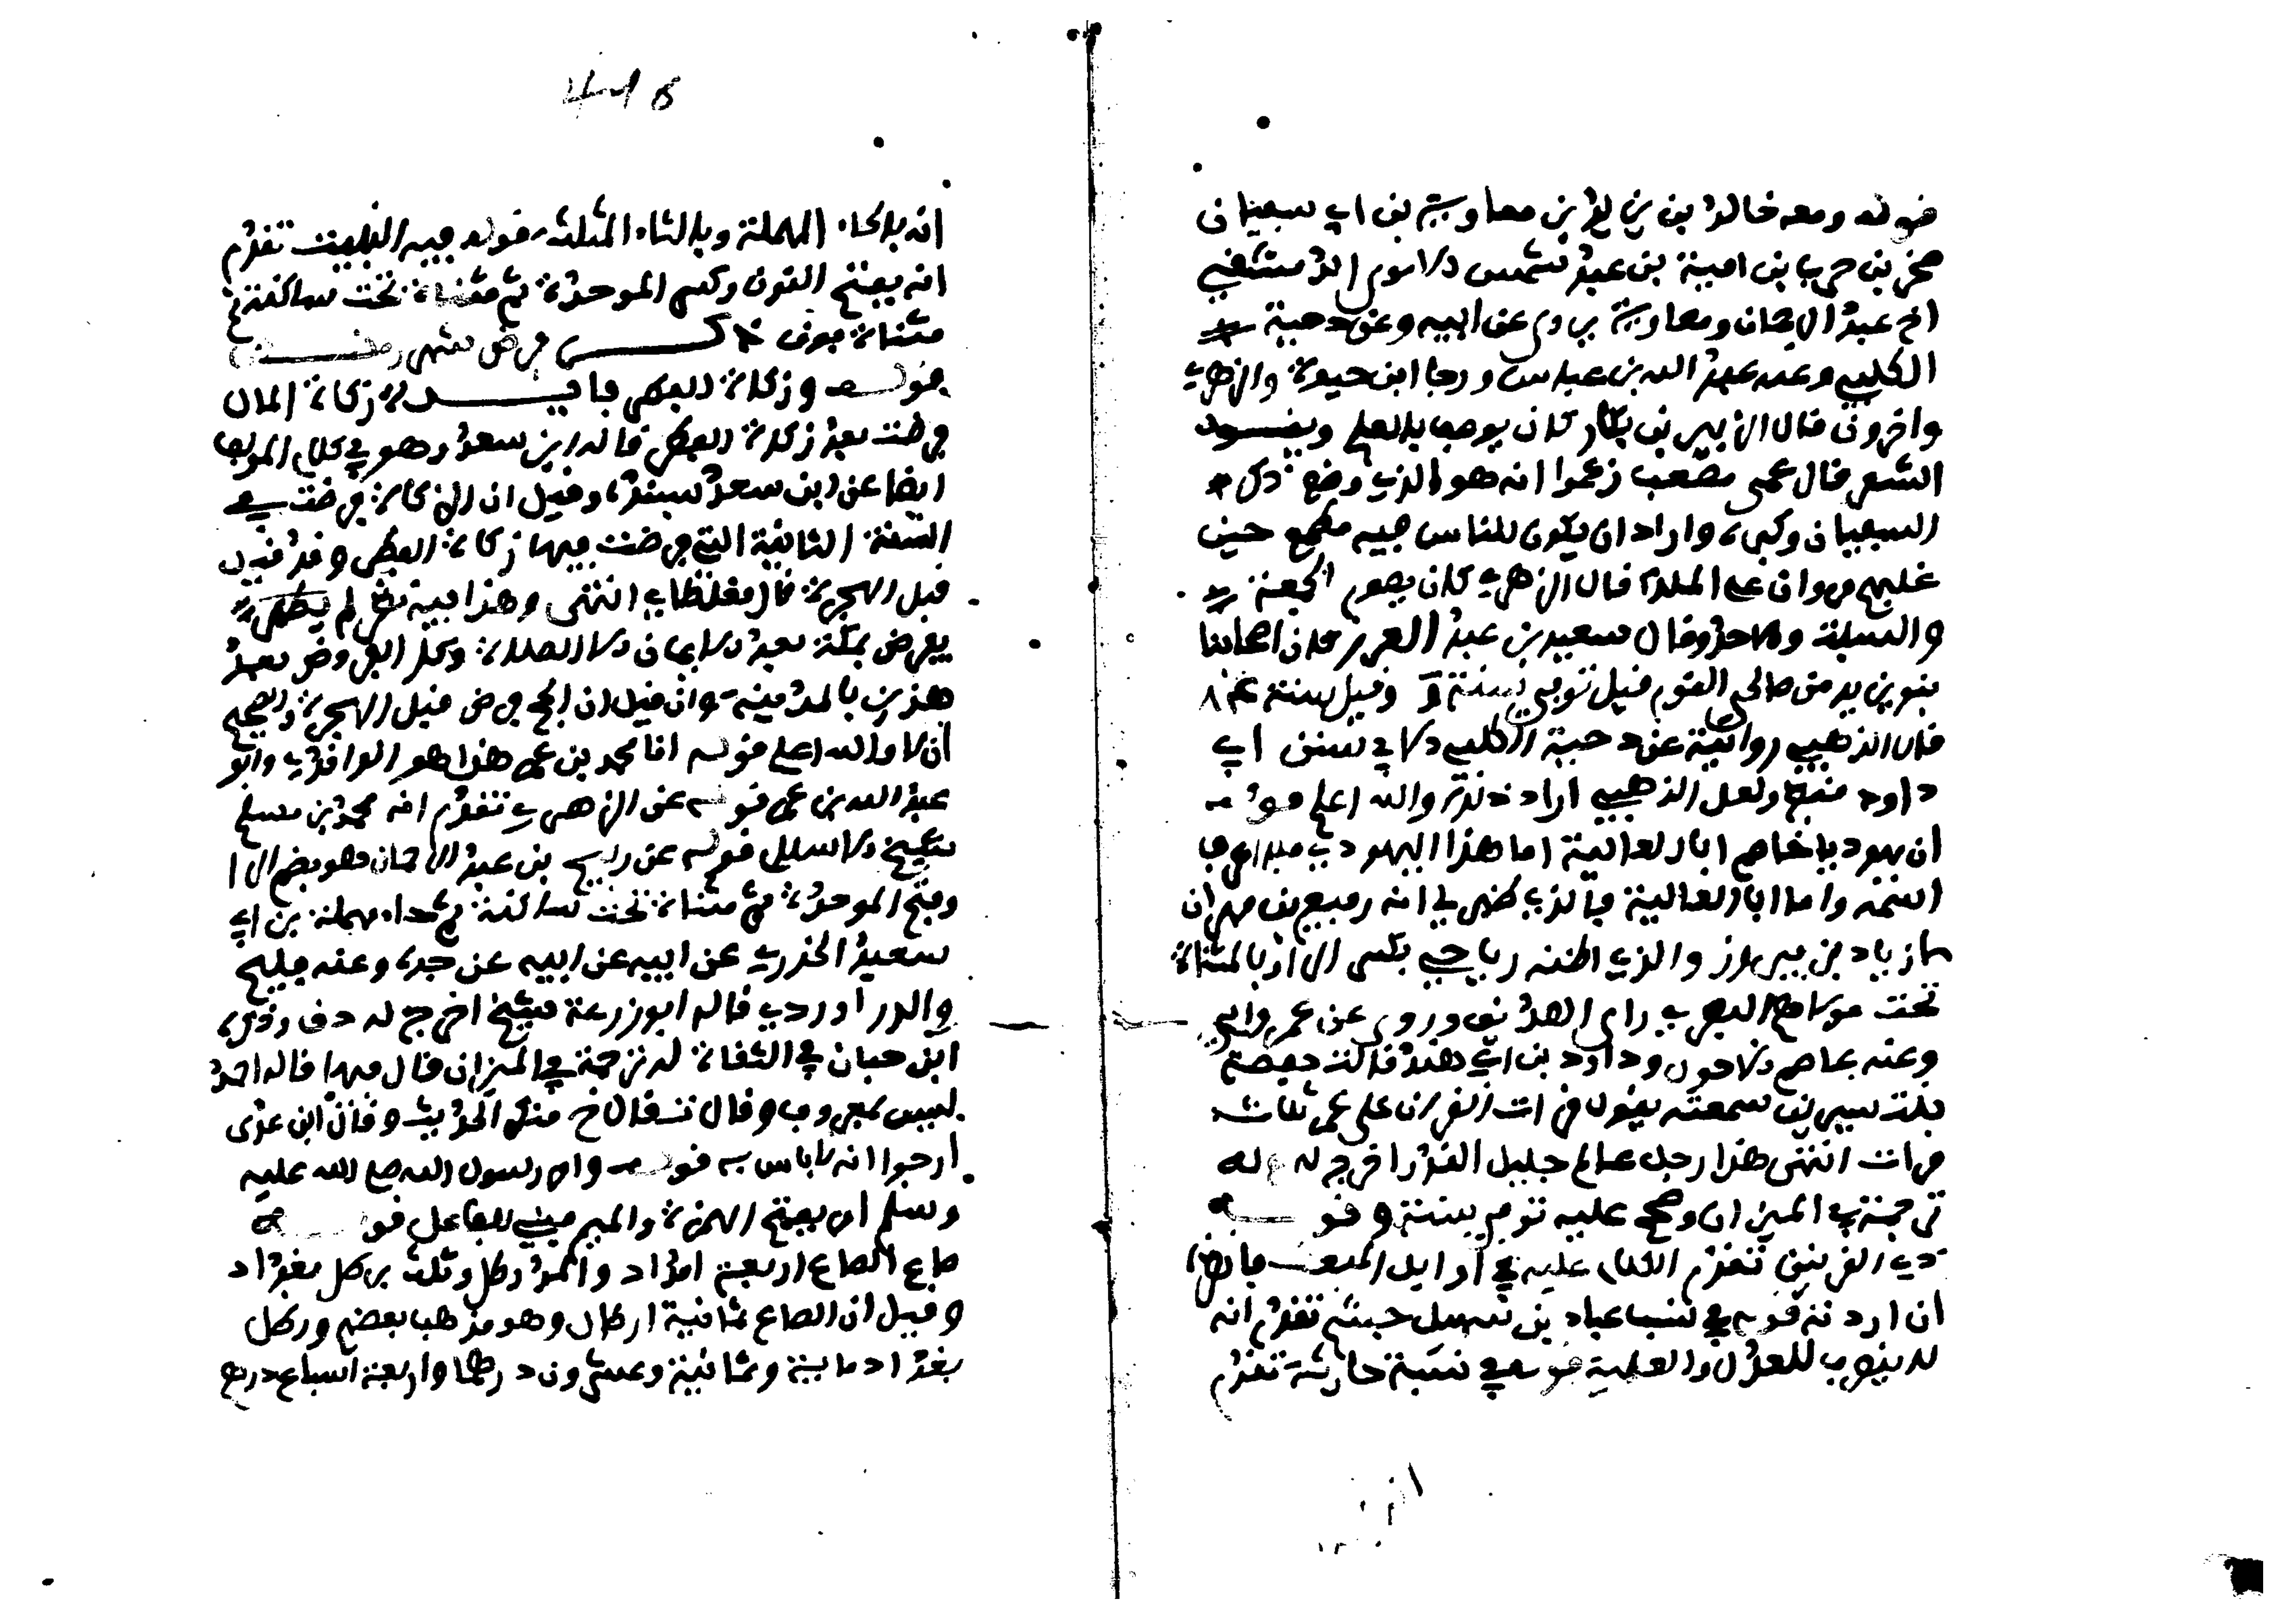 قوله ومعه خالد بن يزيد بن معاوية بن ابي سفيان
صخر بن حرب بن امية بن عبد شمس الاموي الدمشقي
اخ عبد الرحمان ومعاوية يروي عن ابيه وعن دحية
الكلبي وعنه عبد الله بن عباس ورجا ابن حيوة والزهري
واخرون قال الزبير بن بكار كان يوصف بالعلم ويقول
الشعر قال عمي مصعب زعموا انه هو الذي وضع ذكر
السفيان وكبره واراد ان يكون للناس فيه مطمع حين
غلبهم مروان على الملك قال الزهري كان يصوم الجمعة
والسبت والاحد وقال سعيد بن عبد العزيز كان اصحابنا
بنو يزيد من صالحي القوم قيل توفي سنة وقيل سنة
قال الذهبي روايته عن دحية الكلبي في سنن ابي
داود منقطع ولعل الذهبي اراد ذلك والله اعلم قوله
ان يهوديا خاصم ابا العالية اما هذا اليهودي فلا اعرفه
واما ابا العالية فالذي ظهر لي انه رفيع بن مهران
زياد بن فيروز والذي اظنه رياحي بكسر الراء بالمثناة
تحت مولاهم البصري راى الصديق وروى عن عمر وابي
وعنه عاصم الاحول وداود بن ابي هند قالت حفصة
بنت سيرين سمعته يقول قرات القران على عمر ثلاث
مرات انتهى هذا رجل عالم جليل القدر اخرج له وله
ترجمة في الميزان وصحح عليه توفي سنة قوله
ذي القرنين تقدم الكلام عليه في اوايل المبعث فانظره
ان اردته قوله في نسب عباد بن سهل جشم تقدم انه
لا ينصرف للعدل والعلمية قوله في نسبه حارثة تقدم
416
انه بالحاء المهملة وبالثاء المثلثة قوله فيه النبيت تقدم
انه بفتح النون وكسر الموحدة ثم مثناة تحت ساكنة ثم
مثناة فوق ذكر فرض شهر رمضان
قوله وزكاة الفطر فايدة زكاة المال
فرضت بعد زكاة الفطر قاله ابن سعد وهو في كلام المولف
ايضا عن ابن سعد بسنده وقيل ان الزكاة فرضت في
السنة الثانية التي فرضت فيها زكاة الفطر وقد قيل
قبل الهجرة قال مغلطاي انتهى وهذا فيه نظر لم
يفرض بمكة بعد الايمان الا الصلاة وكل الفروض بعد
هذين بالمدينة وان قيل ان الحج فرض قبل الهجرة والصحيح
ان لا والله اعلم قوله انا محمد بن عمر هذا هو الواقدي وابو
عبد الله بن عمر قوله عن الزهري تقدم انه محمد بن مسلم
شيخ الاسلام قوله عن ربيح بن عبد الرحمان هو بضم الرا
وفتح الموحدة ثم مثناة تحت ساكنة ثم حاء مهملة بن ابي
سعيد الخدري عن ابيه عن ابيه عن جده وعنه فليح
والدراوردي قال ابو زرعة شيخ اخرج له د ق وذكره
ابن حبان في الثقات له ترجمة في الميزان قال فيها قال احمد
ليس بمعروف وقال خ منكر الحديث وقال ابن عدي
ارجوا انه لا باس به قوله وامر رسول الله صلى الله عليه
وسلم امر بفتح الهمزة والميم مبني للفاعل قوله
صاع الصاع اربعة امداد والمد رطل وثلث برطل بغداد
وقيل ان الصاع ثمانية ارطال وهو مذهب بعضهم ورطل
بغداد ماية وثمانية وعشرون درهما واربعة اسباع درهم